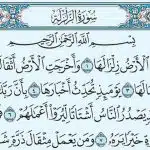 سُورَةُ الزَّلْزَلَةِ
بِسْمِ اللَّهِ الرَّحْمَٰنِ الرَّحِيمِ
الْأَرْضُ زِلْزَالَهَا ١ وَأَخْرَجَتِ الْأَرْضُ أَثْقَالَ
لَهَا ٣ يَوْمَئِذٍ تُحَدِّثُ أَخْبَارَهَا ٤ بِأَنَّ رَبَّكَ
يَصْدُرُ النَّاسُ أَشْتَاتًا لِّيُرَوْا أَعْمَٰلَهُمْ ٦
خَيْرًا يَرَهُۥ ٧ وَمَن يَعْمَلْ مِثْقَالَ ذَرَّةٍ